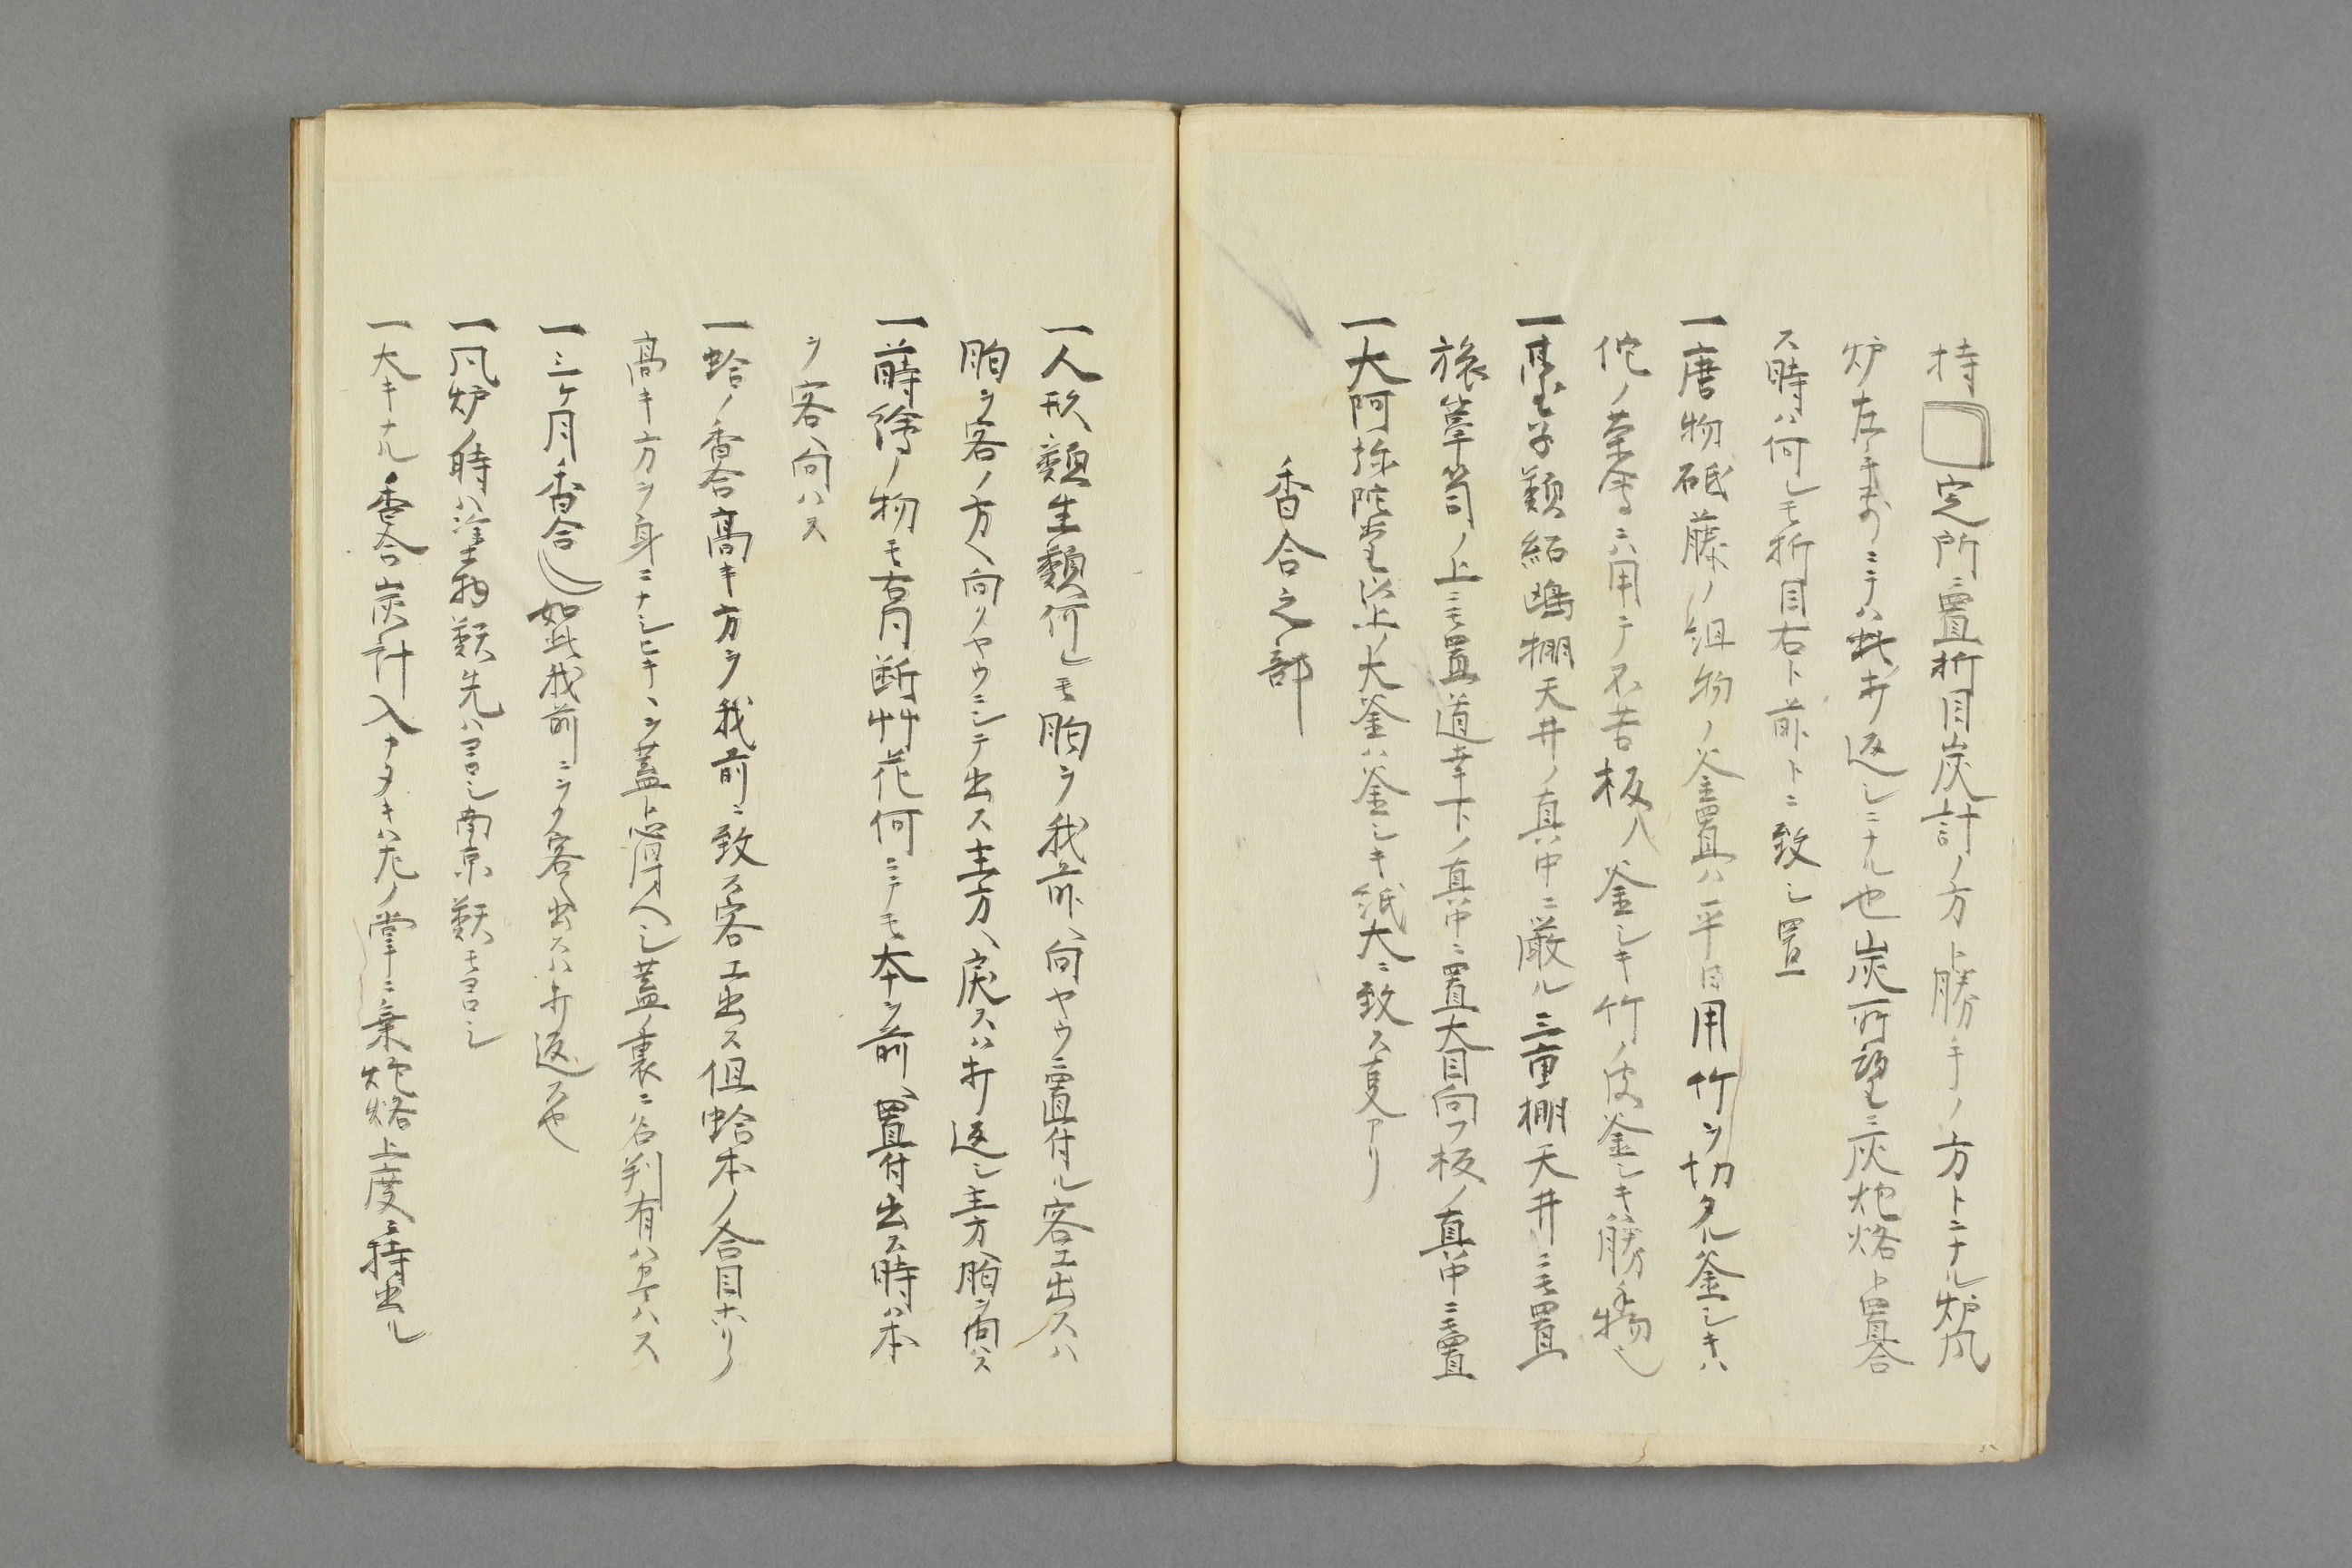 持 定所ニ置折目炭計ノ方ト勝手ノ方トニナル炉風
炉左手前ニテハ此ガ返シニナル也炭所望ニ灰炮烙ト置合
ス時ハ何レモ折目右ト前トニ致シ置
一唐物砥藤ノ組物ノ釜置ハ平日用竹ヲ切タル釜シキハ
佗ノ茶會ニハ用テ不苦板八釜シキ竹ノ皮釜シキ勝手物也
一臺子類紹鴎棚天井ノ真中ニ厳ル三重棚天井ニモ置
旅箪笥ノ上ニモ置道幸下ノ真中ニ置大目向フ板ノ真中ニモ置
一大阿弥陀堂以上ノ大釜ハ釜シキ紙大ニ致ス支アリ
香合之部
一人形類生類何レモ胸ヲ我前ヘ向ヤウニ置付ル客エ出スハ
胸ヲ客ノ方ヘ向リヤウニシテ出ス主方ヘ戻スハ打返シ主方ヘ胸ヲ向ハス
一蒔繪ノ物モ右同断艸花何ニテモ本ヲ前ヘ置付出ス時ハ本
ヲ客ヘ向ハス
一蛤ノ香合高キ方ヲ我前ニ致ス客エ出ス但蛤本ノ合目ホリノ
高キ方ヲ身ニナシヒキヽヲ蓋ト心得ヘシ蓋ノ裏ニ名判有ハ
一三ケ月香合 如此我前ニヲク客ヘ出スハ打返ス也
一風炉ノ時ハ塗物類先ハヨロシ南京類モヨロシ
一大キナル香合炭計入カタキハ左ノ掌ニ乗炮烙上度ニ持出ル